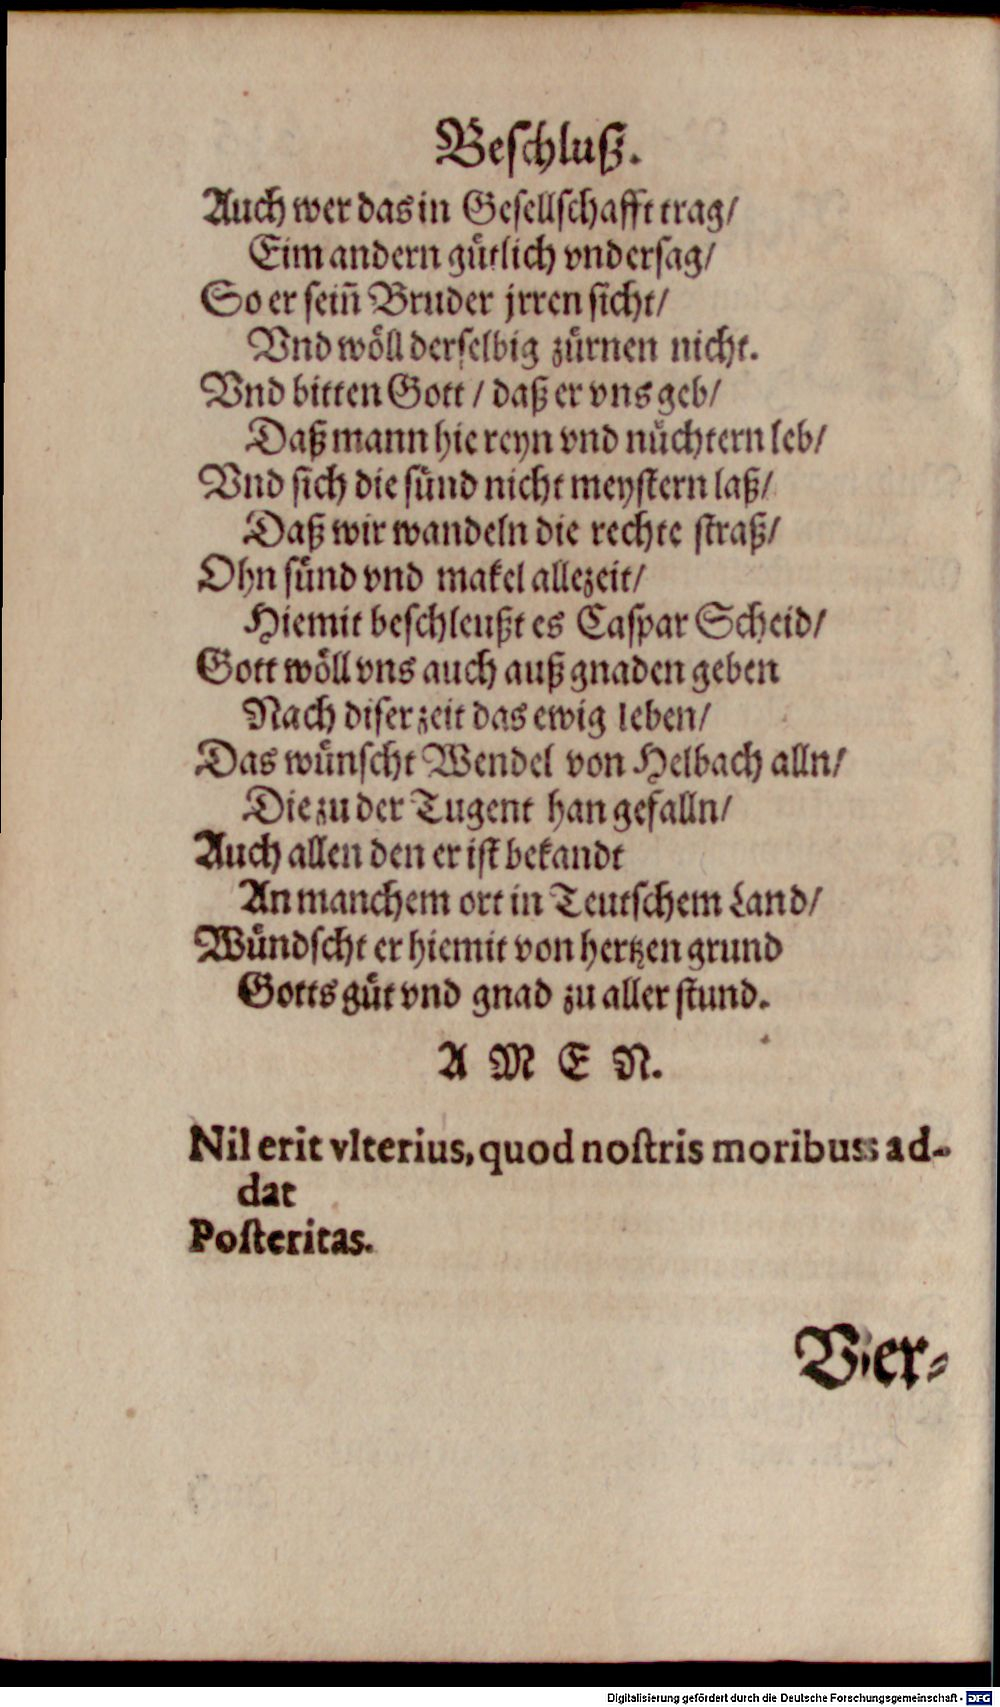 Beschluß.
Auch wer das in Gesellschafft trag/
Eim andern gütlich vndersag/
So er sein̄ Bruder jrren sicht/
Vnd wöll derselbig zürnen nicht.
Vnd bitten Gott / daß er vns geb/
Daß mann hie reyn vnd nüchtern leb/
Vnd sich die sünd nicht meystern laß/
Daß wir wandeln die rechte straß/
Ohn sünd vnd makel allezeit/
Hiemit beschleußt es Caspar Scheid/
Gott wöll vns auch auß gnaden geben
Nach diser zeit das ewig leben/
Das wünscht Wendel von Helbach alln/
Die zu der Tugent han gefalln/
Auch allen den er ist bekandt
An manchem ort in Teutschem Land/
Wündscht er hiemit von hertzen grund
Gotts güt vnd gnad zu aller stund.
A M E N.
Nil erit vlterius, quod nostris moribus ad-
dat
Posteritas.
Ver-
Digitalisierung gefördert durch die Deutsche Forschungsgemeinschaft - DFG